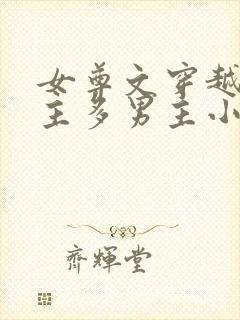 女尊文穿越
主多男主小
齊輝堂